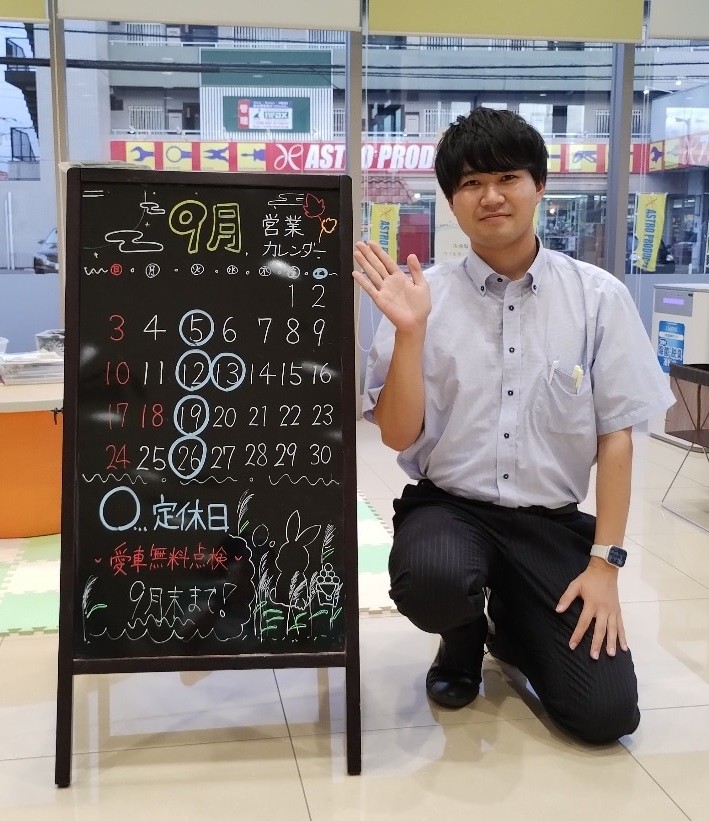 ASTRO PROD
ASTRO PRODU
9月
営業
カレンダー
日 月 火 水 木 金 土
1 2
3 4 5 6 7 8 9
10 11 12 13 14 15 16
17 18 19 20 21 22 23
24 25 26 27 28 29 30
○…定休日
愛車無料点検
9月末まで!